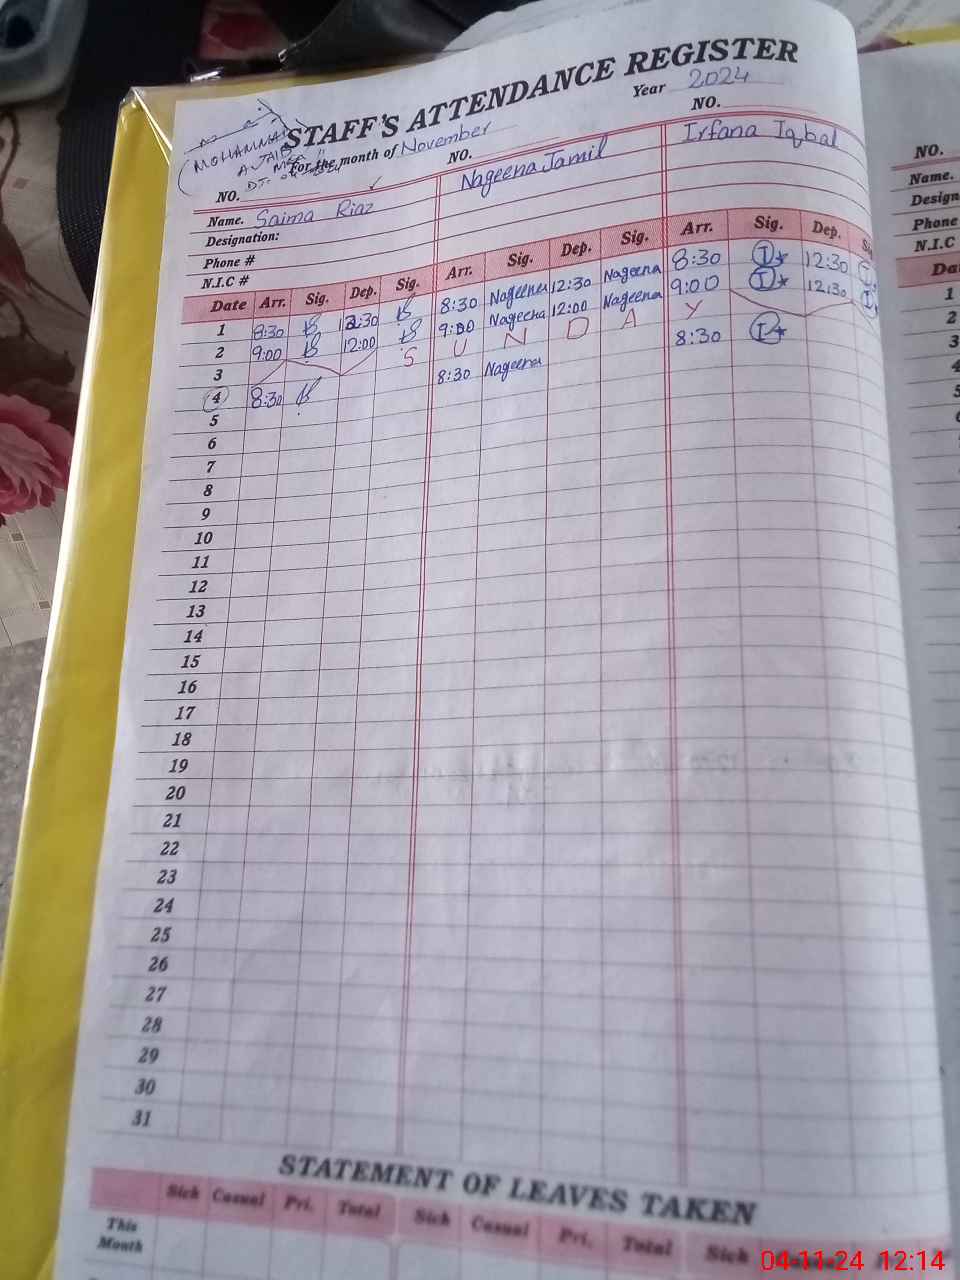 STAFF'S ATTENDANCE REGISTER
Year 2024
For the month of November
NO. NO. NO.
Name. Saima Riaz Nageena Jamil Irfana Iqbal
Designation:
Phone #
N.I.C #
Date Arr. Sig. Dep. Sig. Arr. Sig. Dep. Sig. Arr. Sig. Dep.
1 8:30 12:30 8:30 Nageena 12:30 Nageena 8:30 I 12:30
2 9:00 12:00 9:00 Nageena 12:00 Nageena 9:00 I 12:30
3 S U N D A Y
4 8:30 8:30 Nageena 8:30 I
5
6
7
8
9
10
11
12
13
14
15
16
17
18
19
20
21
22
23
24
25
26
27
28
29
30
31
STATEMENT OF LEAVES TAKEN
Sick Casual Pri. Total Sick Casual Pri. Total Sick
This Month
NO.
Name.
Design
Phone
N.I.C
Da
1
2
3
4
5
6
7
8
9
10
11
04-11-24 12:14